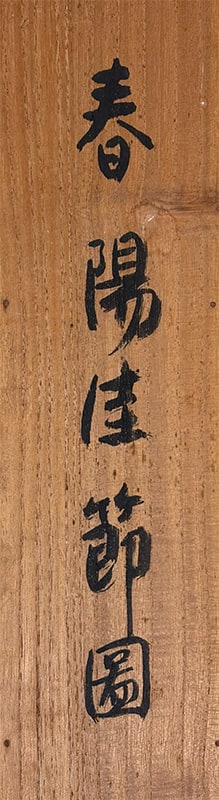 春陽佳節圖